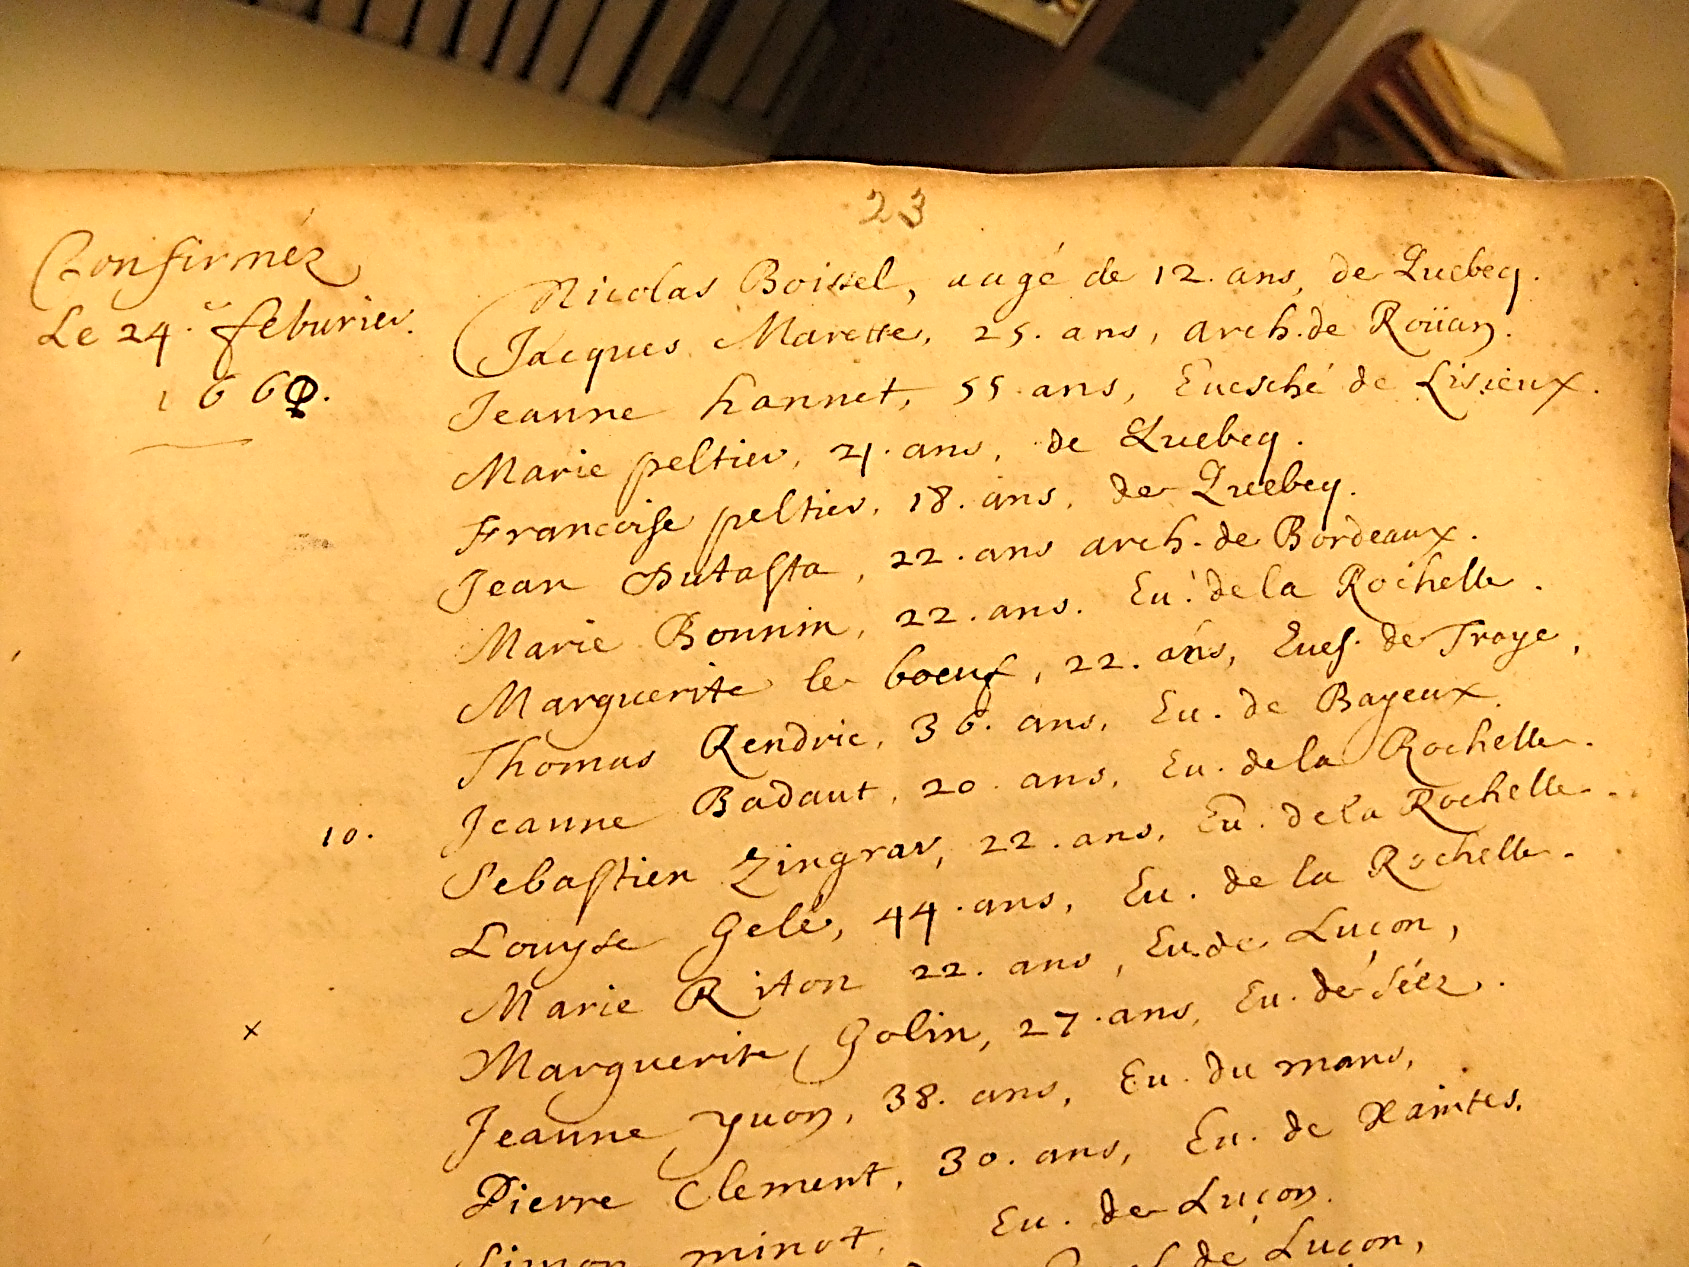 23
Confirméz
Le 24.e feburier.
Nicolas Boissel, aagé de 12. ans, de Quebeq.
Jacques Marette, 25. ans, arch. de Roüan.
Jeanne hannet, 55 ans, Euesché de Lisieux.
Marie peltier, 21. ans, de Quebeq.
Francoise peltier, 18. ans, de Quebeq.
Jean Dutasta, 22. ans arch. de Bordeaux.
Marie Bonnin, 22. ans. Eu. de la Rochelle.
Marguerite le boeuf, 22. ans, Eues. de Troye,
Thomas Rendric, 36. ans, Eu. de Bayeux.
10. Jeanne Badaut, 20. ans, Eu. de la Rochelle.
Sebastien Lingrav, 22. ans, Eu. de la Rochelle.
Louyse Gelé, 44. ans, Eu. de la Rochelle.
Marie Riton 22. ans, Eu. de Luçon,
x Marguerite Golin, 27. ans, Eu. de Séez.
Jeanne yuon, 38. ans, Eu. du mans,
Pierre Clement, 30. ans, Eu. de Xaintes.
Simon minot, Eu. de Luçon.
de Luçon,